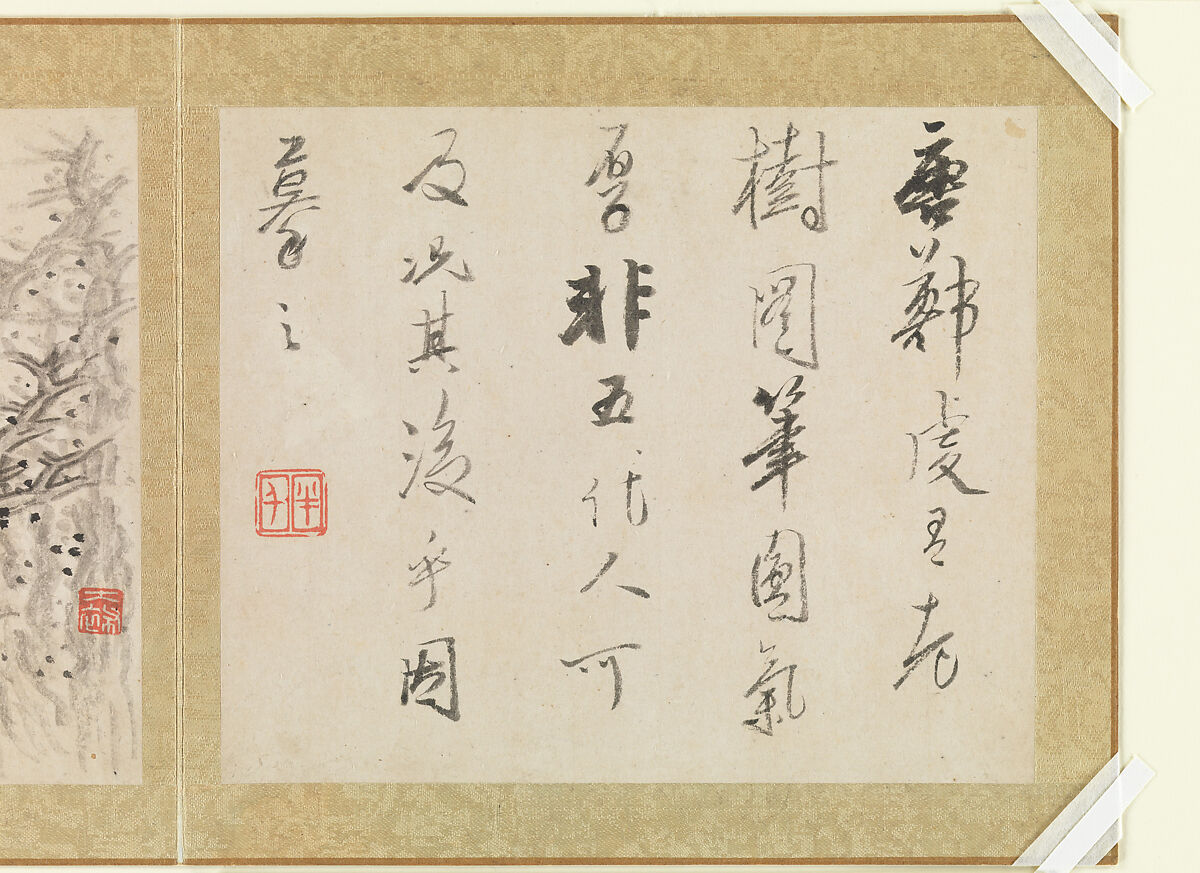 唐鄭虔有老
樹圖筆圓氣
厚非五代人可
及況其後乎因
摹之
半千